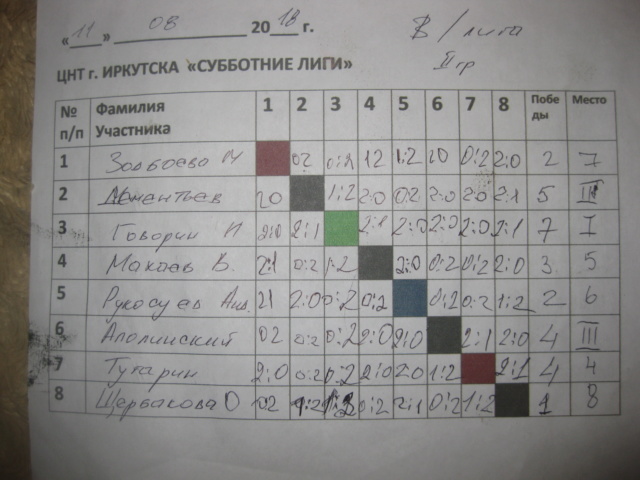 « 11 » 08 2018 г. В/лига
II гр
ЦНТ г. ИРКУТСКА «СУББОТНИЕ ЛИГИ»
№ п/п Фамилия Участника 1 2 3 4 5 6 7 8 Победы Место
1 М 02 0:2 12 1:2 20 0:2 2:0 2 7
2 Дементьев 20 1:2 2:0 0:2 2:0 2:0 2:1 5 II
3 Говорин И 2:0 2:1 2:1 2:0 2:0 2:0 2:1 7 I
4 В. 2:1 0:2 1:2 2:0 0:2 0:2 2:0 3 5
5 Рукосуев 21 2:0 0:2 0:2 0:2 0:2 1:2 2 6
6 Аполинский 02 0:2 0:2 2:0 2:0 2:1 2:0 4 III
7 Тугарин 2:0 0:2 0:2 2:0 2:0 1:2 2:1 4 4
8 Щербакова О 0:2 1:2 0:2 2:1 0:2 1:2 1 8